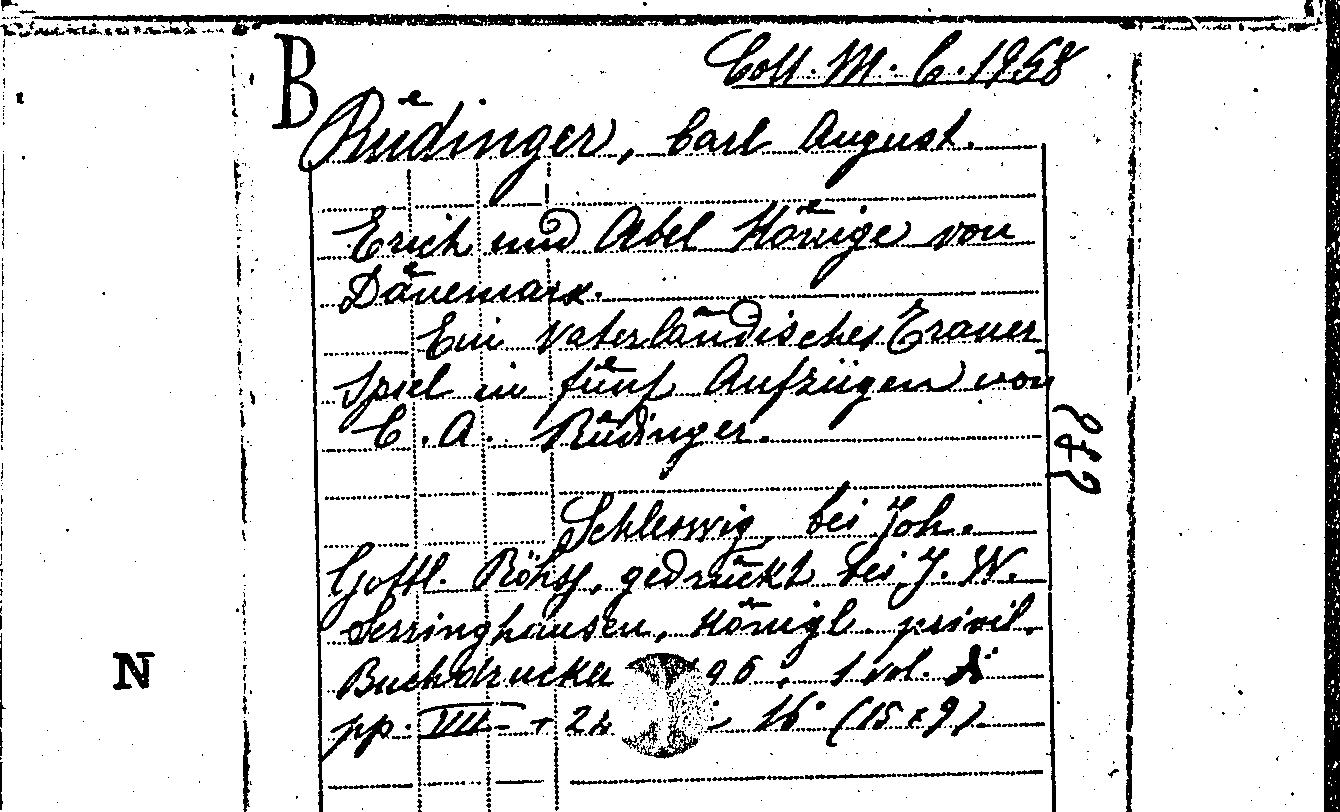 B
Coll. M. C. 1958
Rüdinger, Carl August.
Erich und Abel Könige von
Dänemark.
Ein Vaterländisches Trauer
Spiel in fünf Aufzügen von
C. A. Rüdinger.
Schleswig, bei Joh.
Gottl. Röhss, gedruckt bei J. W.
Serringhausen, Königl. privil.
Buchdrucker 96. 1 vol. di
pp. VIII + 16° (15 x 9)
N